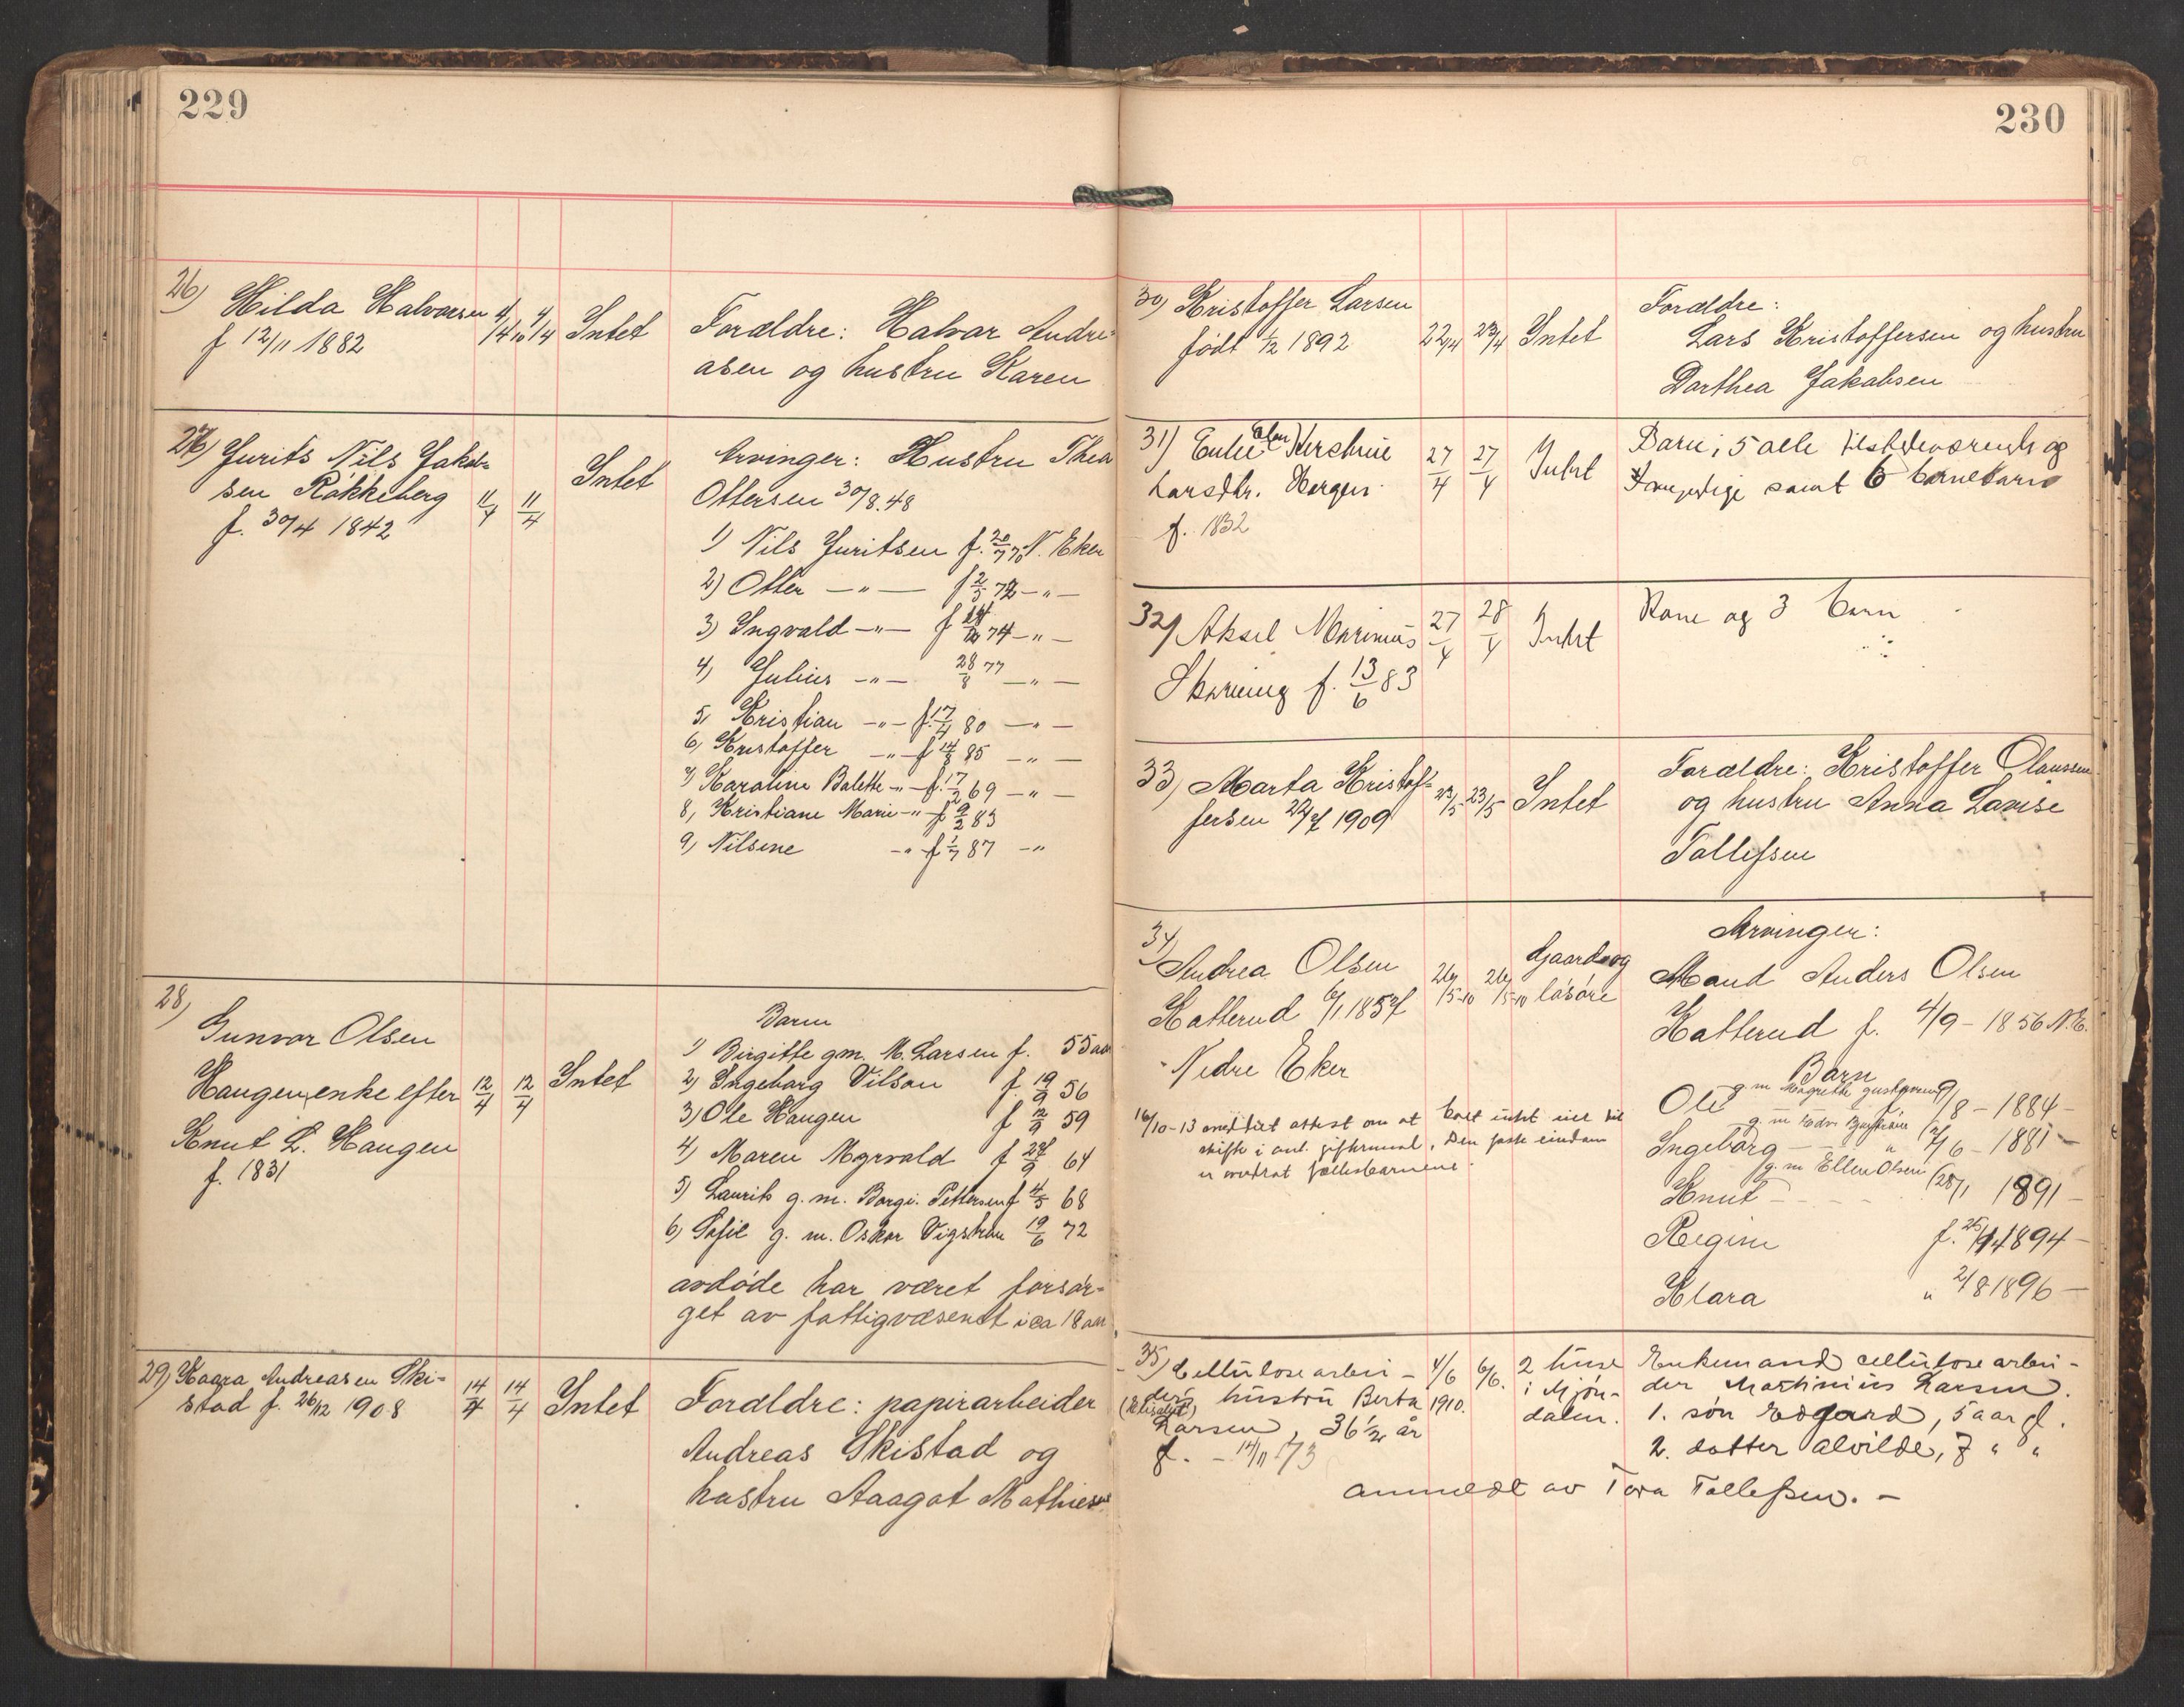 229
26) Hilda Halvorsen 4/4 10 4/4 Intet Forældre: Halvor Andre-
f 12/11 1882 asen og hustru Karen
27) Jurits Nils Jakob-
sen Rökkeberg 11/4 11/4 Intet
f. 30/4 1842
Arvinger: Hustru Thea
Ottersen 30/8.48
1) Nils Juritsen f. 20/7 70 N. Eker
2) Otter -"- f 2/5 72 -"-
3) Ingvald -"- f 74 -"-
4) Julius -"- 28/8 77 -"-
5, Kristian -"- f. 17/4 80 -"-
6, Kristoffer -"- f 14/8 85 -"-
7) Karoline Bolette -"- f. 17/2 69 -"-
8, Kristiane Marie -"- f 9/2 83
9, Nilsine -" f 1/7 87 -"
28)
Gunvor Olsen
Haugen, enke efter 12/4 12/4 Intet
Knut L. Haugen
f. 1831
Barn
1) Birgitte gm. M. Larsen f. 55 aar
2) Ingeborg Vilson f. 19/9 56
3) Ole Haugen f 12/9 59
4) Maren Myrvold f 27/9 64
5) Laurits g. m. Borgi. Pettersen f 4/5 68
6) Sofie g. m. Oskar Vigstrøm 19/6 72
avdøde har været forsør-
get av fattigvæsenet i ca 18 aar
29) Kaara Andreasen Ski-
stad f. 26/12 1908 14/4 14/4 Intet
Forældre: papirarbeider
Andreas Skistad og
hustru Aagot Mathiesen
230
30) Kristoffer Larsen
født 1/12 1892 22/4 23/4 Intet
Forældre:
Lars Kristoffersen og hustru
Dorthea Jakobsen
31) 27/4 27/4 Intet
Larsdtr. Horgen
f. 1832
Barn; 5 alle tilstedeværende og
myndige samt 6 barnebarn
32) Aksel Marinius 27/4 28/4 Intet
f. 13/6 83
Kone og 3 barn
33) Marta Kristof-
fersen 22/7 1909 23/5 23/5 Intet
Forældre: Kristoffer Olaussen
og hustru Anna Lovise
Tollefsen
34)
Andrea Olsen 26/5-10 26/5-10 Gaard og
Hatterud 6/1 1857 løsøre
Nedre Eker
Arvinger:
Mand Anders Olsen
Hatterud f. 4/9 - 1856 N.E.
Barn
Ole 9/8 - 1884 -
Ingeborg - " /6 - 1881 -
g. m Ellen Olsen
Knut - 28/1 1891 -
Regine f. 25/4 1894 -
Klara " 2/8 1896 -
16/10-13 attest om at
skifte i anl. giftermaal. Den faste eiendom
er overdrat fællesbarnene.
35) Cellulosearbei- 4/6 6/6. 2 huse
ders hustru Berta 1910. i Mjøn-
Larsen, 36 1/2 år dalen.
f. - 14/11 73
Enkemand cellulosearbei-
der Martinius Larsen.
1. søn Edgard, 5 aar gl.
2. datter Alvilde, 7 " "
anmeldt av Tora Tollefsen. -